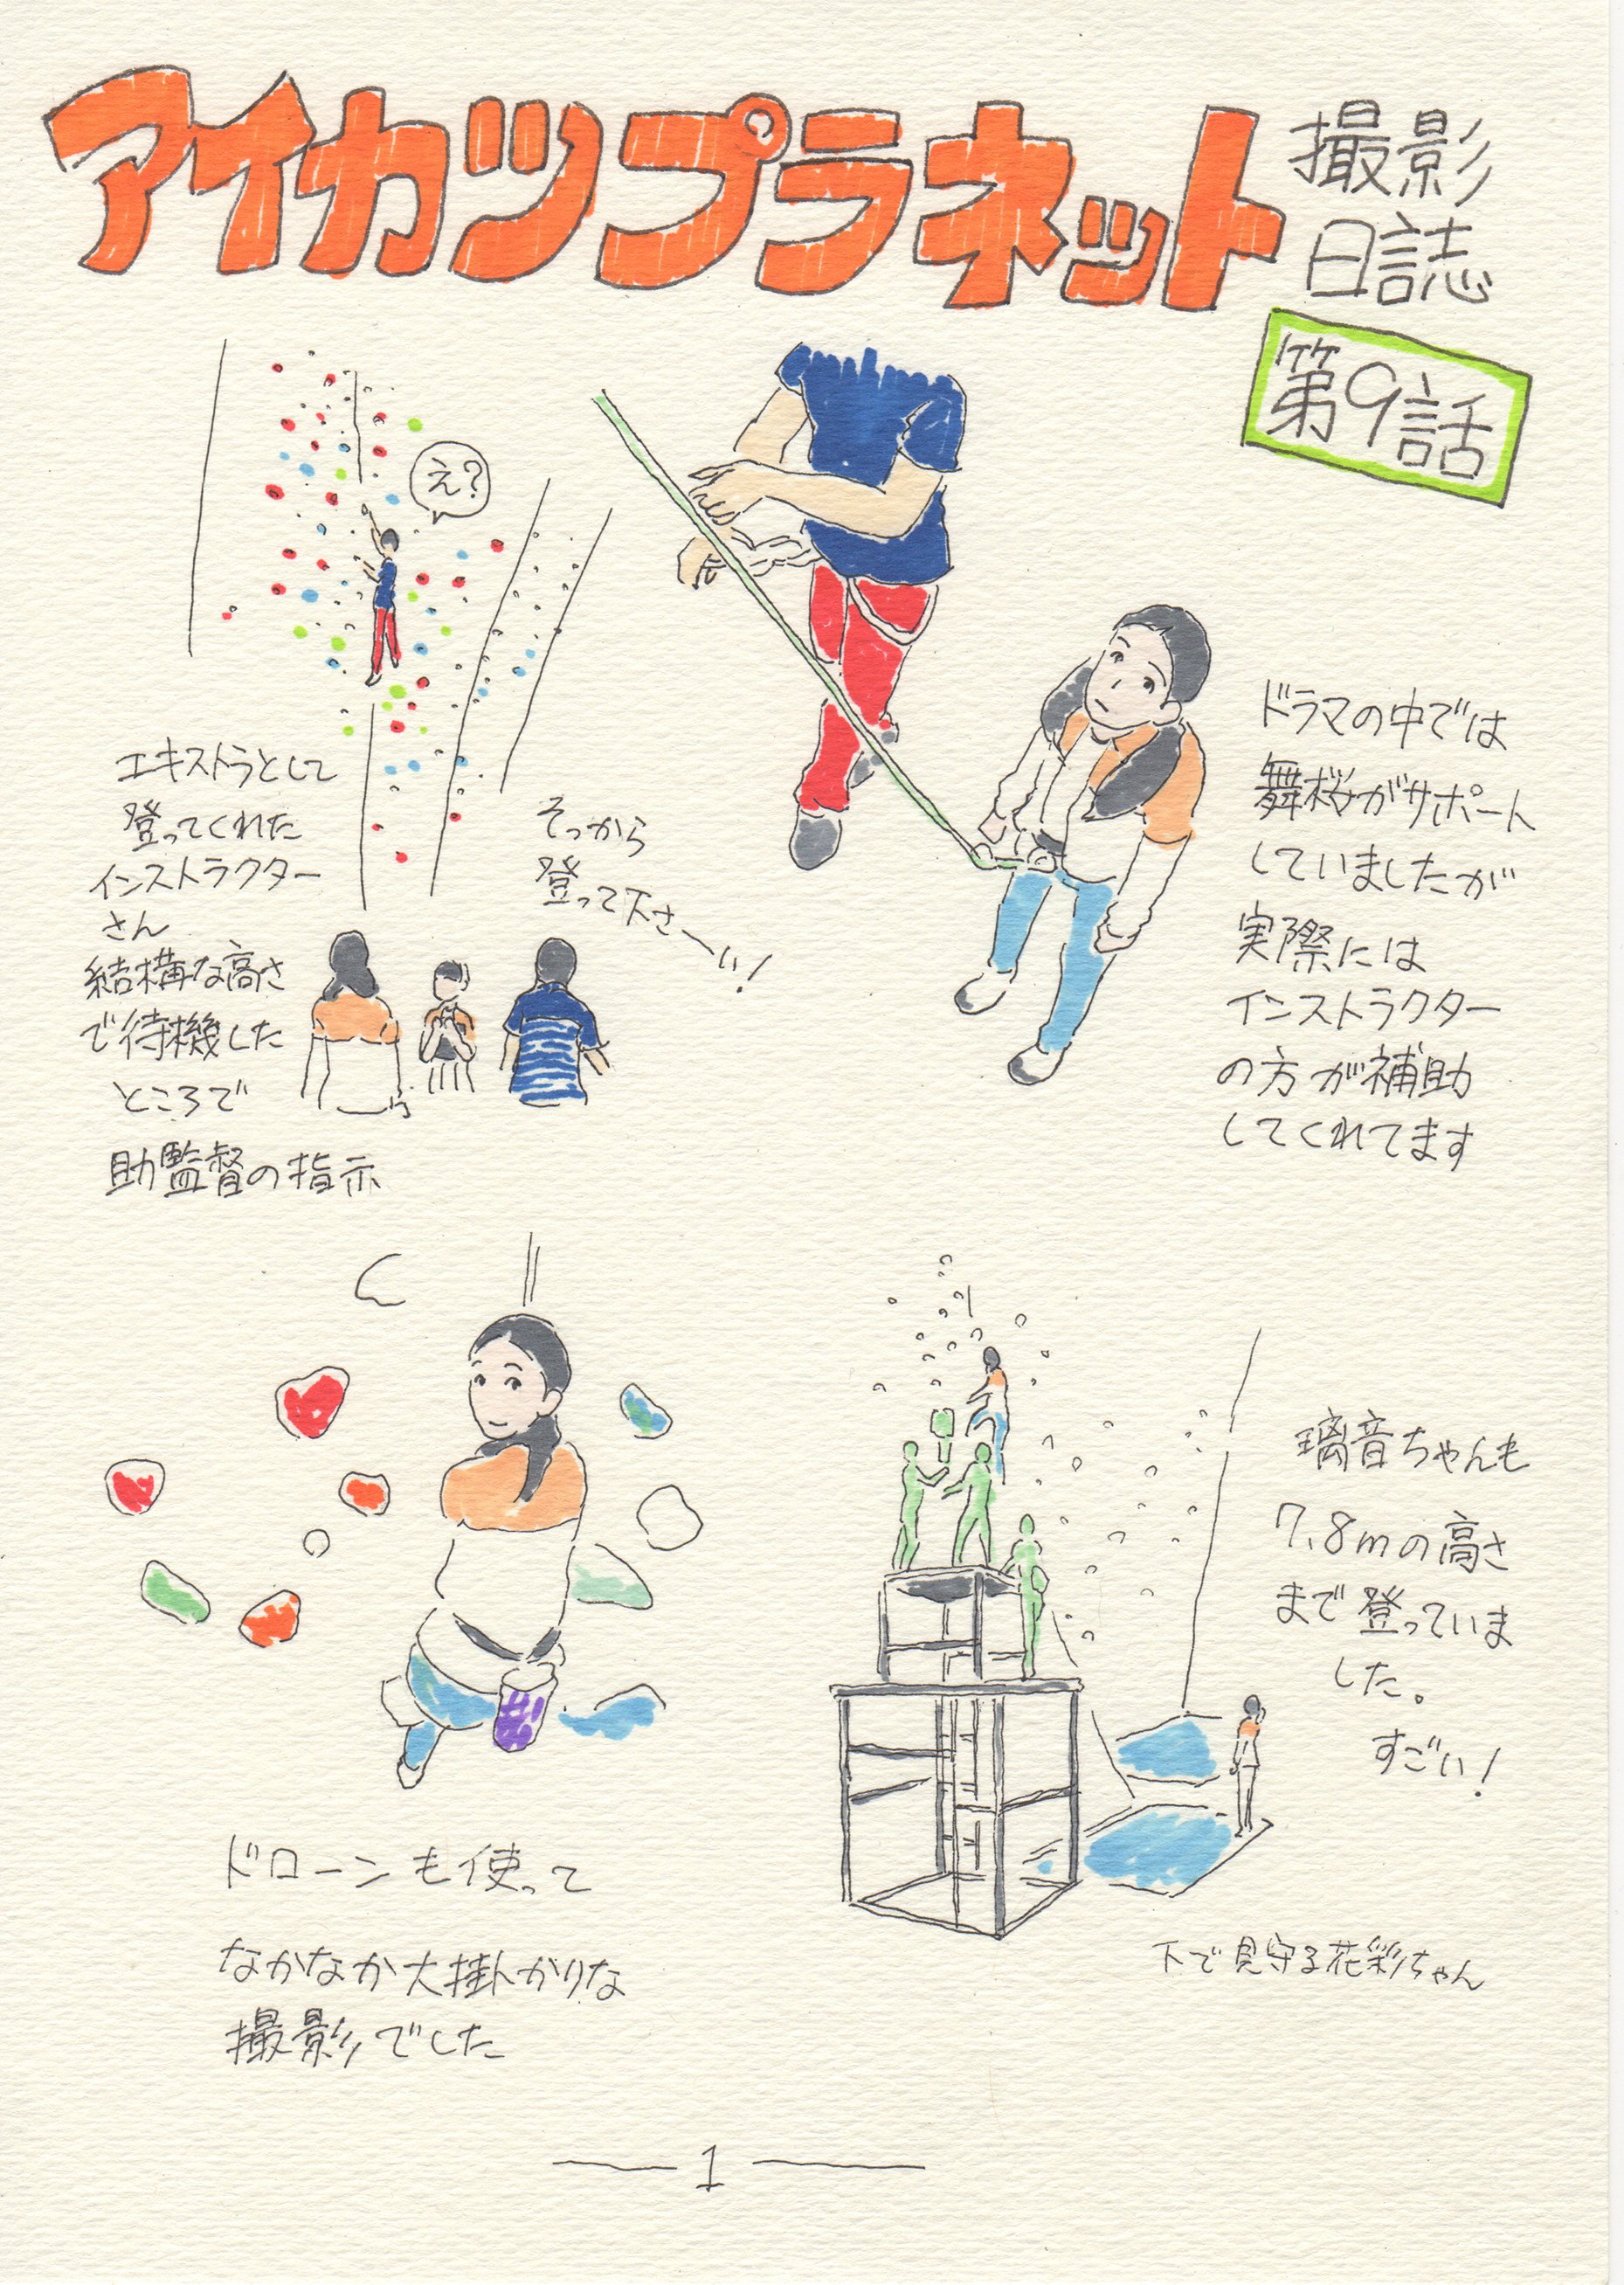 アイカツプラネット
撮影
日誌
第9話
え?
エキストラとして
登ってくれた
インストラクター
さん
結構な高さ
で待機した
ところで
助監督の指示
そっから
登って下さーい!
ドラマの中では
舞桜がサポート
していましたが
実際には
インストラクター
の方が補助
してくれてます
ドローンも使って
なかなか大掛かりな
撮影でした
璃音ちゃんも
7、8mの高さ
まで登っていま
した。
すごい!
下で見守る花彩ちゃん
1